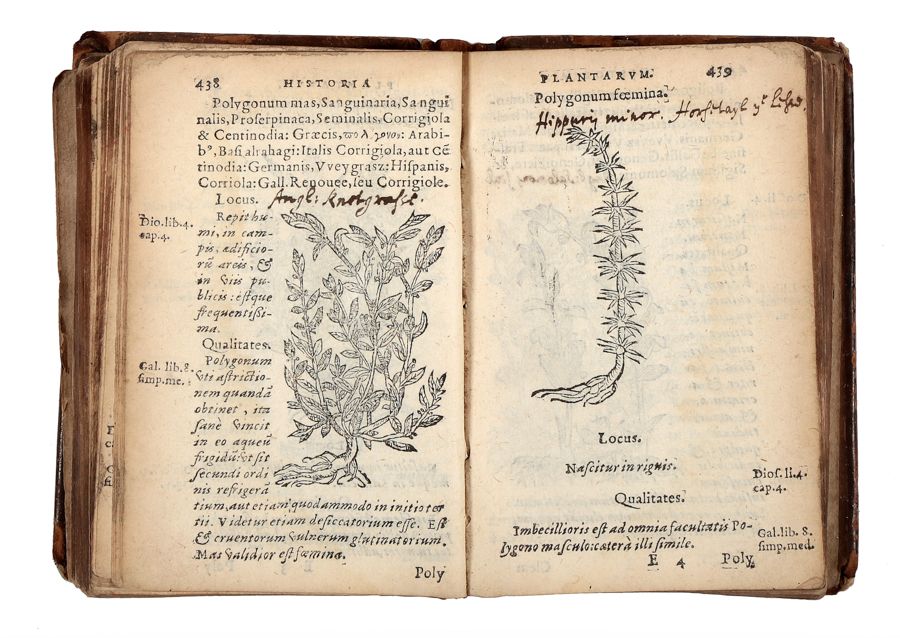 438 HISTORIA
Polygonum mas, Sanguinaria, Sangui
nalis, Proserpinaca, Seminalis, Corrigiola
& Centinodia: Græcis, πολύγονον: Arabi-
bᵒ, Basi alrahagi: Italis Corrigiola, aut Cē
tinodia: Germanis, VVeygrasz: Hispanis,
Corriola: Gall. Renouee, seu Corrigiole.
Locus. Angl: Knotgrasse.
Dio. lib. 4.
cap. 4.
Repithu-
mi, in cam-
pis, ædificio-
rū areis, &
in viis pu-
blicis: estque
frequentissi-
ma.
Qualitates.
Gal. lib. 8.
simp. me.
Polygonum
vti astrictio-
nem quandā
obtinet, ita
sanè vincit
in eo aqueū
frigidū: vt sit
secundi ordi
nis refrigerā
tium, aut etiam quodammodo in initio ter
tii. Videtur etiam desiccatorium esse. Est
& cruentorum vulnerum glutinatorium.
Mas validior est fœmina.
Poly
PLANTARVM. 439
Polygonum fœmina.
Hippuris minor. Horsetayl yᵉ
Locus.
Nascitur in riguis.
Dios. li. 4.
cap. 4.
Qualitates.
Imbecillioris est ad omnia facultatis Po-
lygono masculo: cæterà illi simile.
Gal. lib. 8.
simp. med.
E 4 Poly